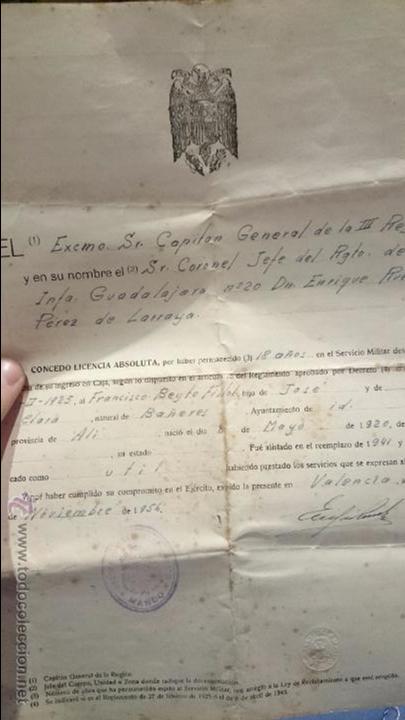 EL (1) Excmo. Sr. Capitan General de la III
y en su nombre el (2) Sr. Coronel Jefe del Rgto. de
Infa. Guadalajara nº 20 Dn. Enrique
Pérez de Larraya.
CONCEDO LICENCIA ABSOLUTA, por haber permanecido (3) 18 años en el Servicio Militar
de su ingreso en Caja, según lo dispuesto en el artículo del Reglamento aprobado por Decreto (4)
al Francisco hijo de José y de
Clara natural de Bañeres Ayuntamiento de id.
provincia de Ali nació el día de Mayo de 1920,
su estado Fué alistado en el reemplazo de 1941 y
cado como util habiendo prestado los servicios que se expresan al
Y por haber cumplido su compromiso en el Ejército, expido la presente en Valencia,
de Noviembre de 1956.
MANDO
(1) Capitán General de la Región.
(2) Jefe del Cuerpo, Unidad o Zona donde radique la documentación.
(3) Número de años que ha permanecido sujeto al Servicio Militar, con arreglo a la Ley de Reclutamiento a que esté acogido.
(4) Se indicará si es el Reglamento de 27 de febrero de 1925 o el de 6 de abril de 1943.
www.todocoleccion.net